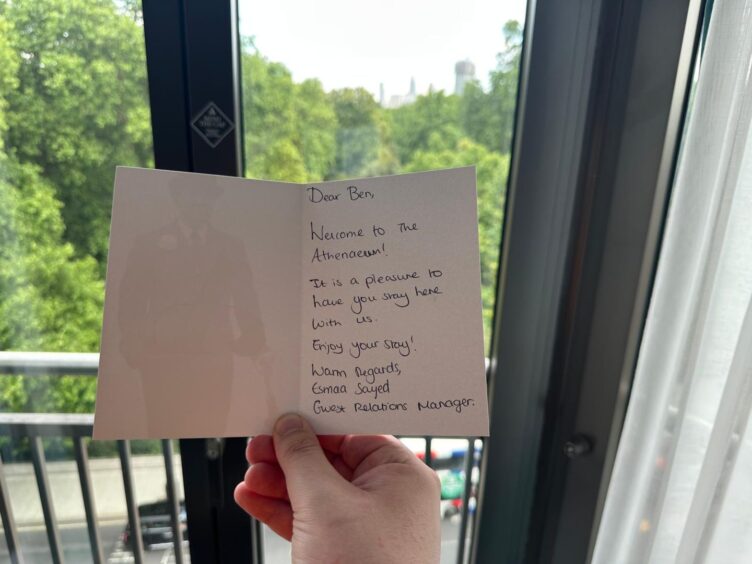 Dear Ben,
Welcome to The
Athenaeum!
It is a pleasure to
have you stay here
with us.
Enjoy your stay!
Warm Regards,
Esmaa Sayed
Guest Relations Manager.